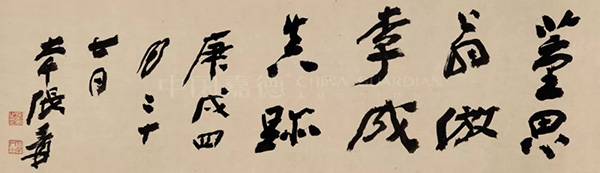 董思
翁倣
李成
真跡
庚戌四
月二十
日
大千張爰
中国嘉德 CHINA GUARDIAN